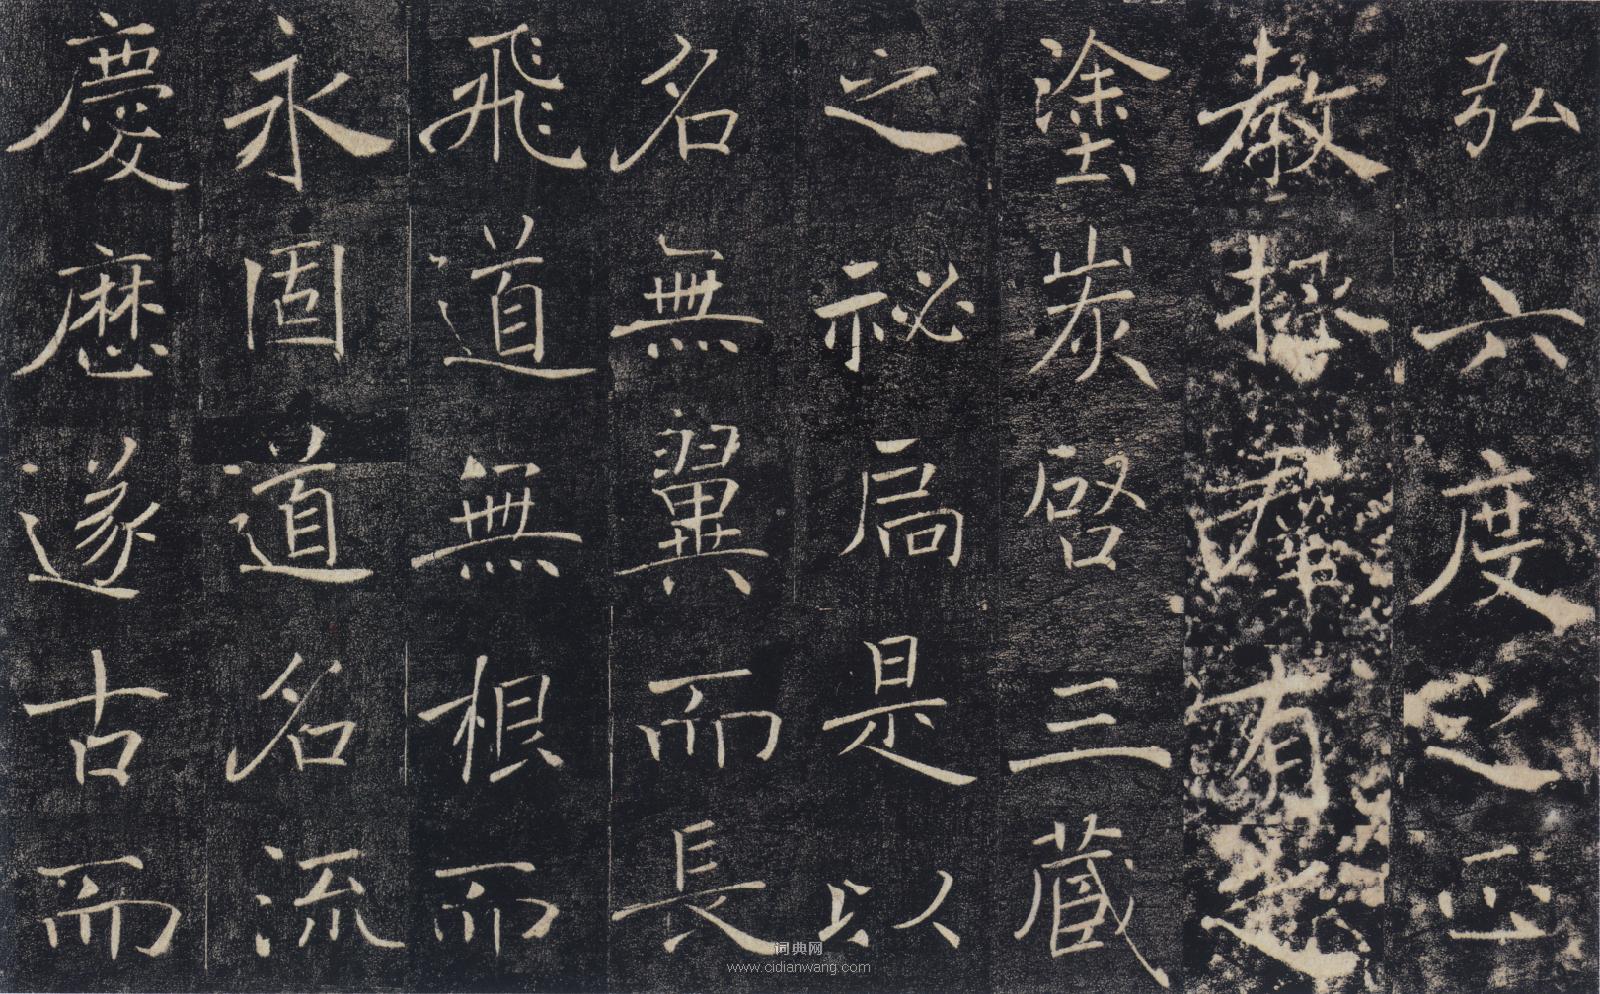 弘六度之正
教拯群有之
塗炭啓三藏
之祕扃是以
名無翼而長
飛道無根而
永固道名流
慶歷遂古而
词典网
www.cidianwang.com